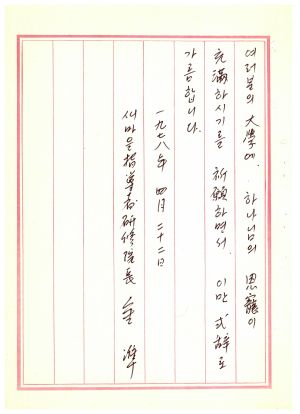 여러분의 大學에. 하나님의 恩寵이
充滿하시기를 祈願하면서. 이만 式辭로
가름합니다.
一九七八年 四月 二十二日
새마을指導者硏修院長 金 準